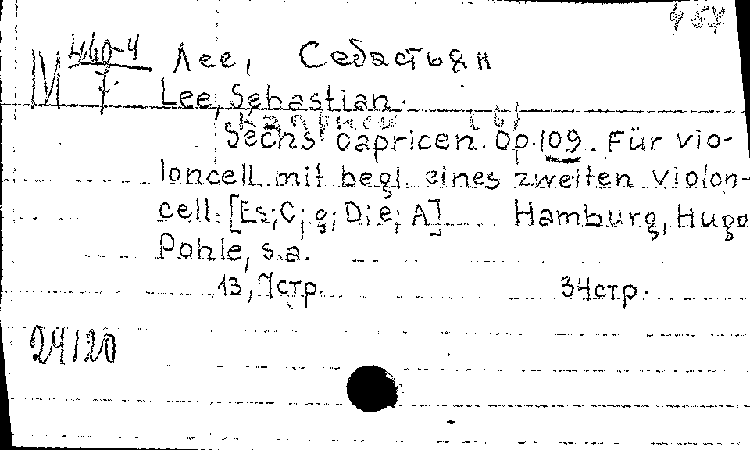 М 460-4/7
Лее, Себастьян
Lee, Sebastian.
Sechs Capricen. Op. 109. Für vio-
loncell mit begl. eines zweiten violon-
cell. [Es; C; g; D; e; A] Hamburg, Hugo
Pohle, s.a.
13, 7 стр. 34 стр.
24120